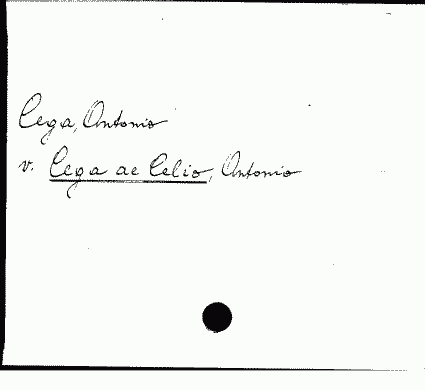 Cega, Antonio
v. Cega ae Celio, Antonio